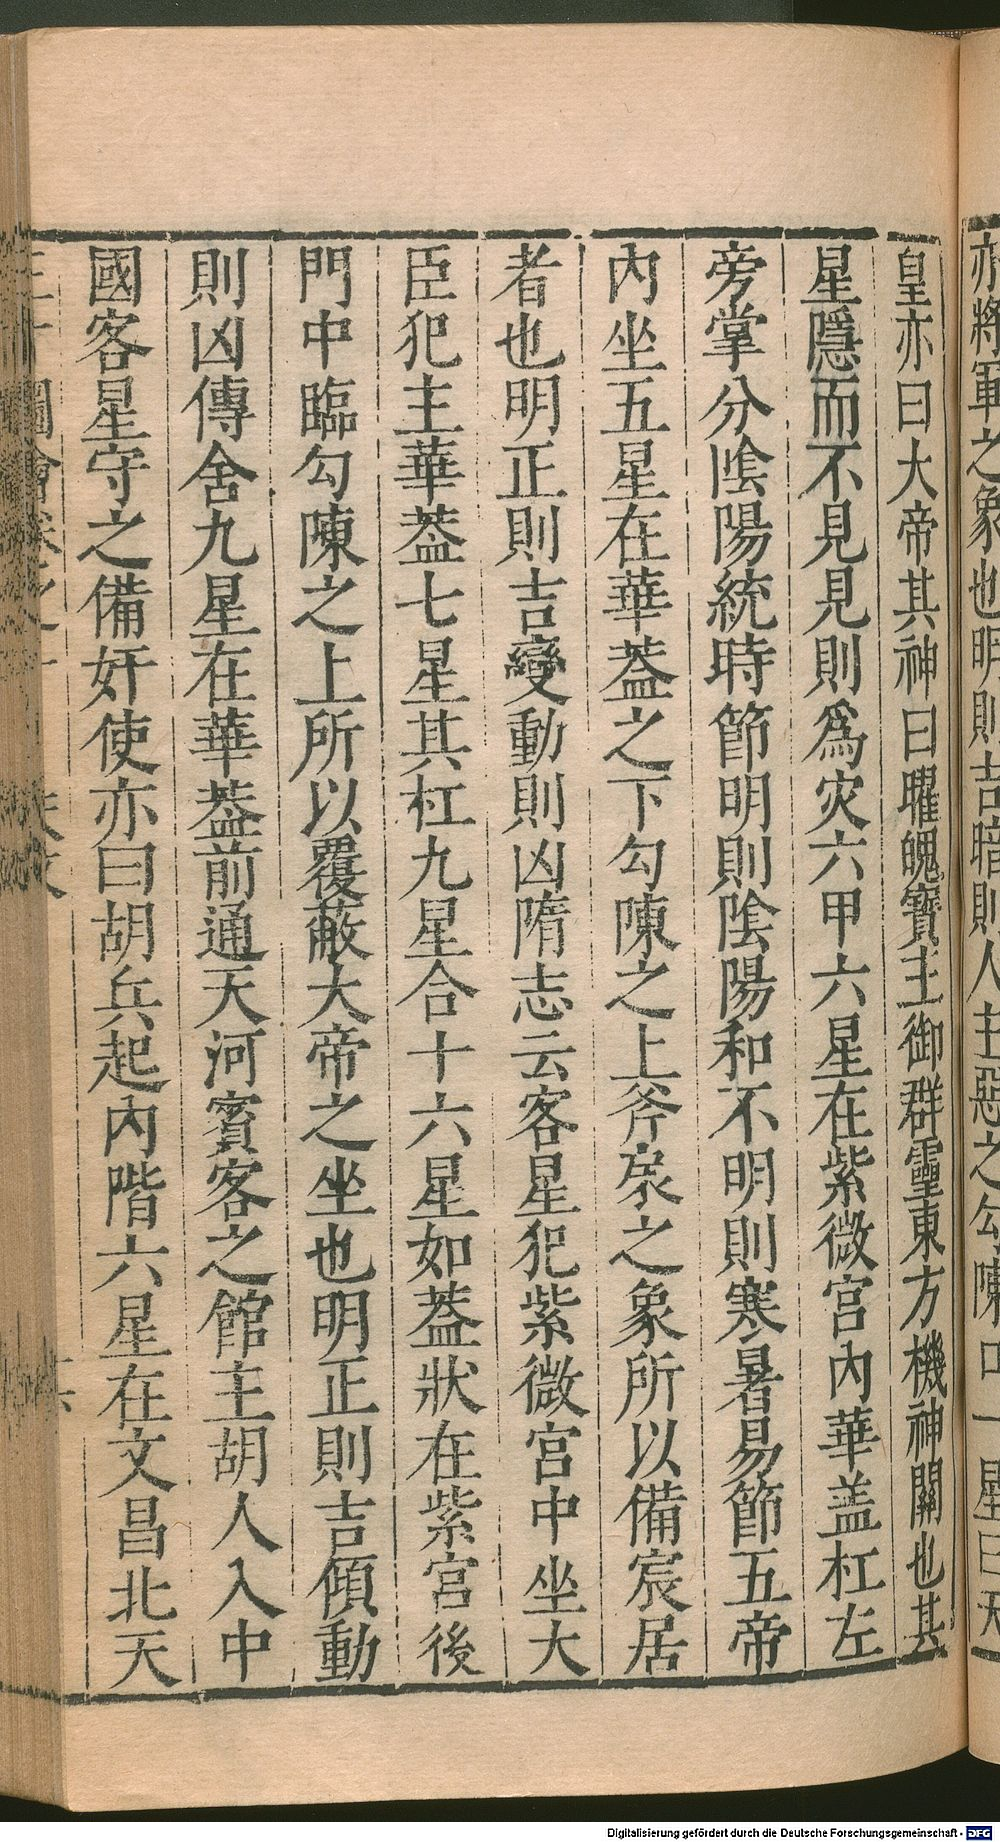 亦將軍之象也明則吉暗則人主惡之勾陳口一星曰天
皇亦曰大帝其神曰曜魄寶主御群靈東方機神關也其
星隱而不見見則爲灾六甲六星在紫微宮內華盖杠左
旁掌分陰陽統時節明則陰陽和不明則寒暑易節五帝
內坐五星在華葢之下勾陳之上斧扆之象所以備宸居
者也明正則吉變動則凶隋志云客星犯紫微宮中坐大
臣犯主華葢七星其杠九星合十六星如葢狀在紫宮後
門中臨勾陳之上所以覆蔽大帝之坐也明正則吉傾動
則凶傳舍九星在華葢前通天河賓客之館主胡人入中
國客星守之備奸使亦曰胡兵起內階六星在文昌北天
Digitalisierung gefördert durch die Deutsche Forschungsgemeinschaft - DFG